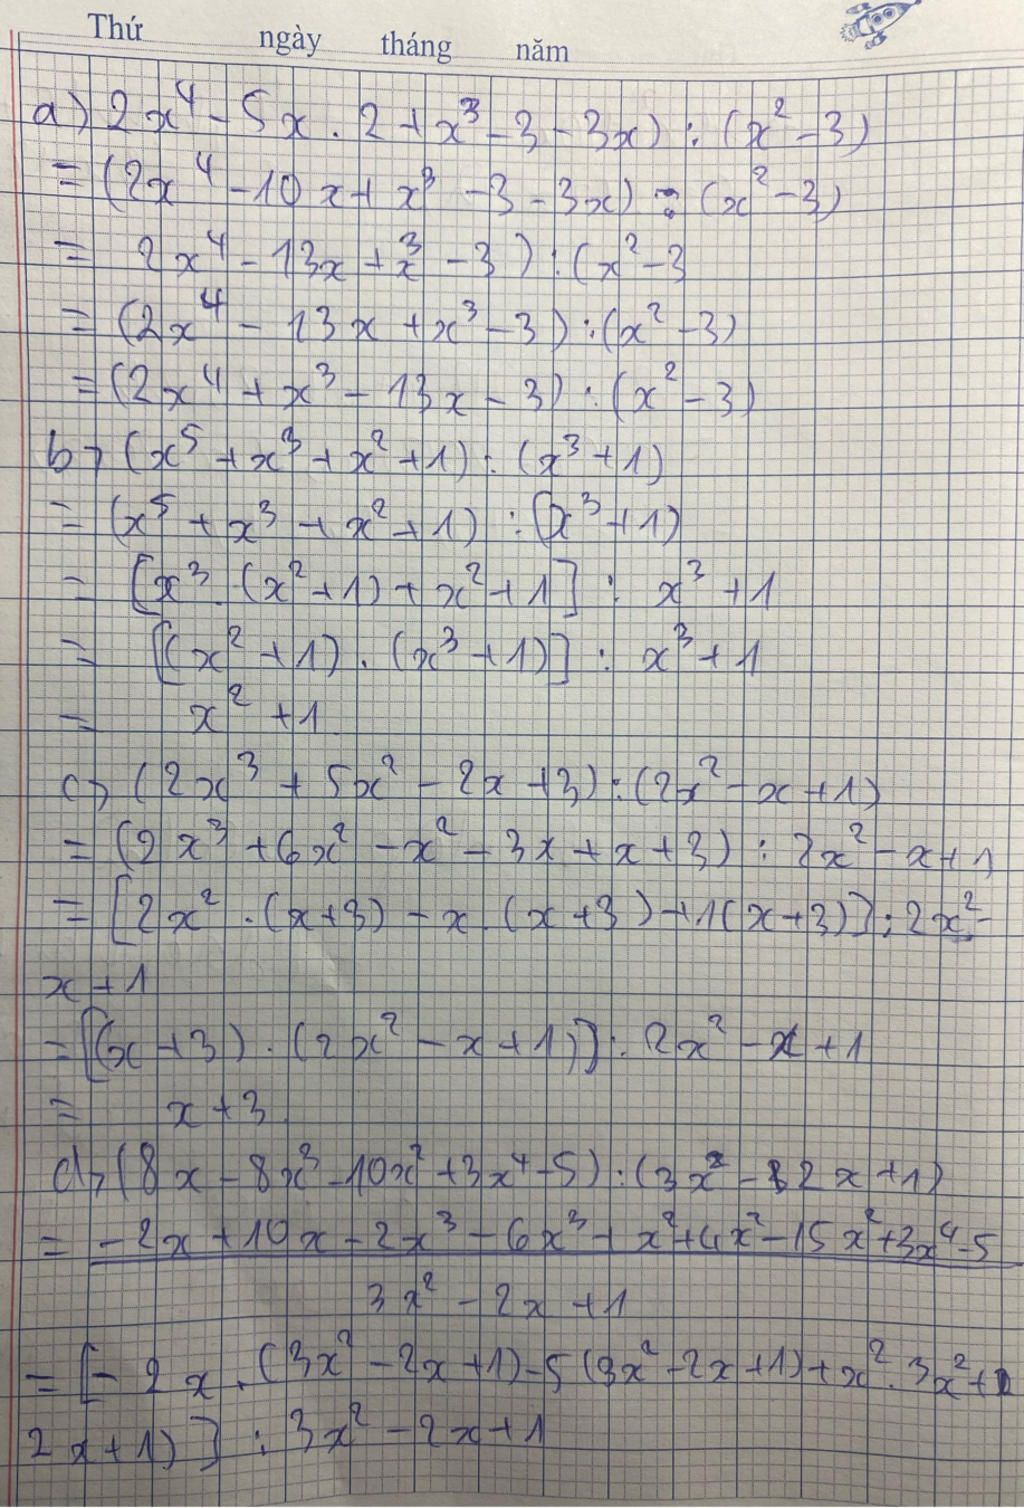 Thứ ngày tháng năm
a) 2x⁴ - 5x . 2 + x³ - 3 - 3x) : (x² - 3)
= (2x⁴ - 10x + x³ - 3 - 3x) : (x² - 3)
= 2x⁴ - 13x + x³ - 3) : (x² - 3
= (2x⁴ - 13x + x³ - 3) : (x² - 3)
= (2x⁴ + x³ - 13x - 3) : (x² - 3)
b) (x⁵ + x³ + x² + 1) : (x³ + 1)
= (x⁵ + x³ + x² + 1) : (x³ + 1)
= [x³ . (x² + 1) + x² + 1] : x³ + 1
= [(x² + 1) . (x³ + 1)] : x³ + 1
= x² + 1
c) (2x³ + 5x² - 2x + 3) : (2x² - x + 1)
= (2x³ + 6x² - x² - 3x + x + 3) : 2x² - x + 1
= [2x² . (x + 3) - x . (x + 3) + 1(x + 3)] : 2x² -
x + 1
= [(x + 3) . (2x² - x + 1)] : 2x² - x + 1
= x + 3
d) (8x - 8x³ - 10x² + 3x⁴ - 5) : (3x² - 2x + 1)
= -2x + 10x - 2x³ - 6x³ + x² + 4x² - 15x² + 3x⁴ - 5
3x² - 2x + 1
= [- 2x . (3x² - 2x + 1) - 5 (3x² - 2x + 1) + x² . 3x² +
2x + 1)] : 3x² - 2x + 1